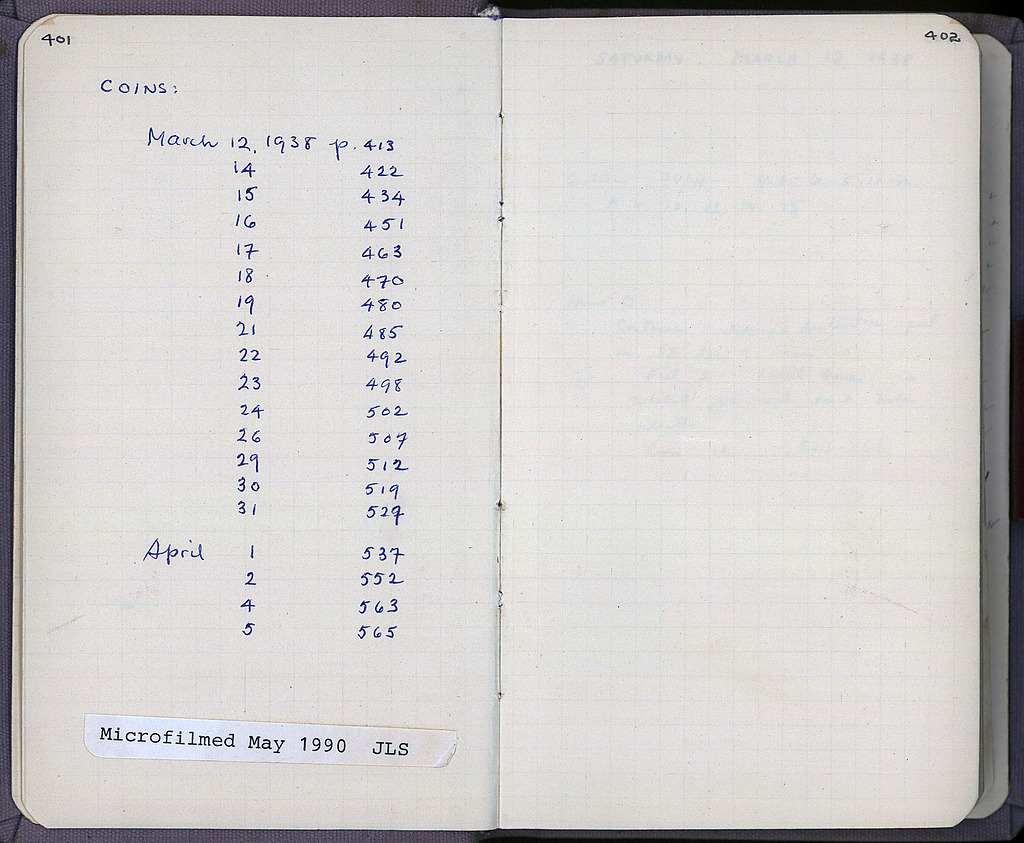 401
COINS:
March 12, 1938 p. 413
14 422
15 434
16 451
17 463
18 470
19 480
21 485
22 492
23 498
24 502
26 507
29 512
30 519
31 527
April 1 537
2 552
4 563
5 565
Microfilmed May 1990 JLS
402
SATURDAY MARCH 12, 1938